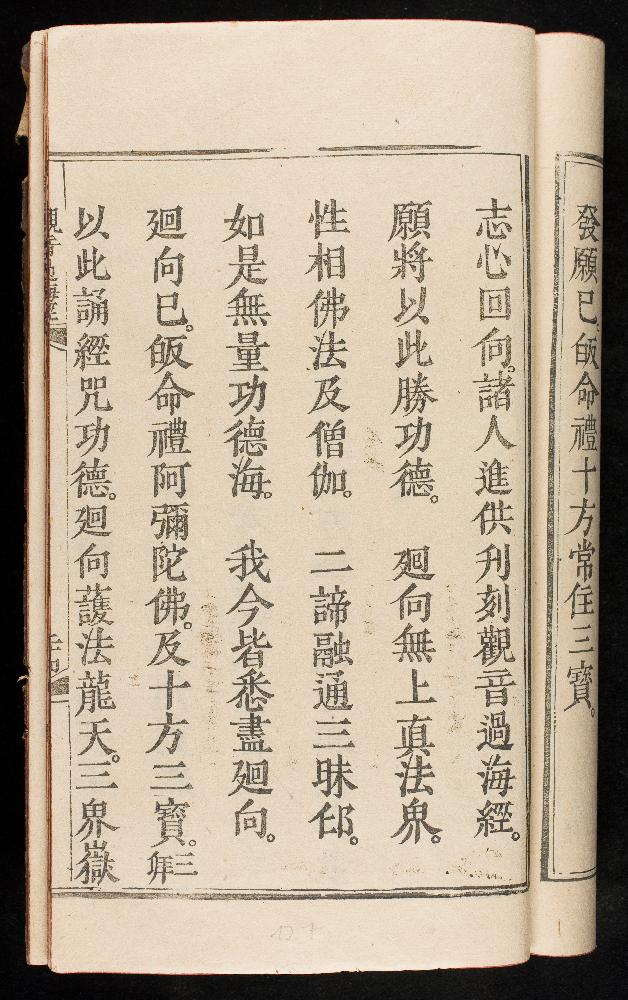 發願已皈命禮十方常住三寶。
志心回向。諸人進供刋刻觀音過海經。
願將以此勝功德。 廻向無上真法界。
性相佛法及僧伽。 二諦融通三昧印。
如是無量功德海。 我今皆悉盡廻向。
廻向已。皈命禮阿彌陀佛。及十方三寳。三
以此誦經咒功德。廻向護法龍天。三界嶽
觀音過海經